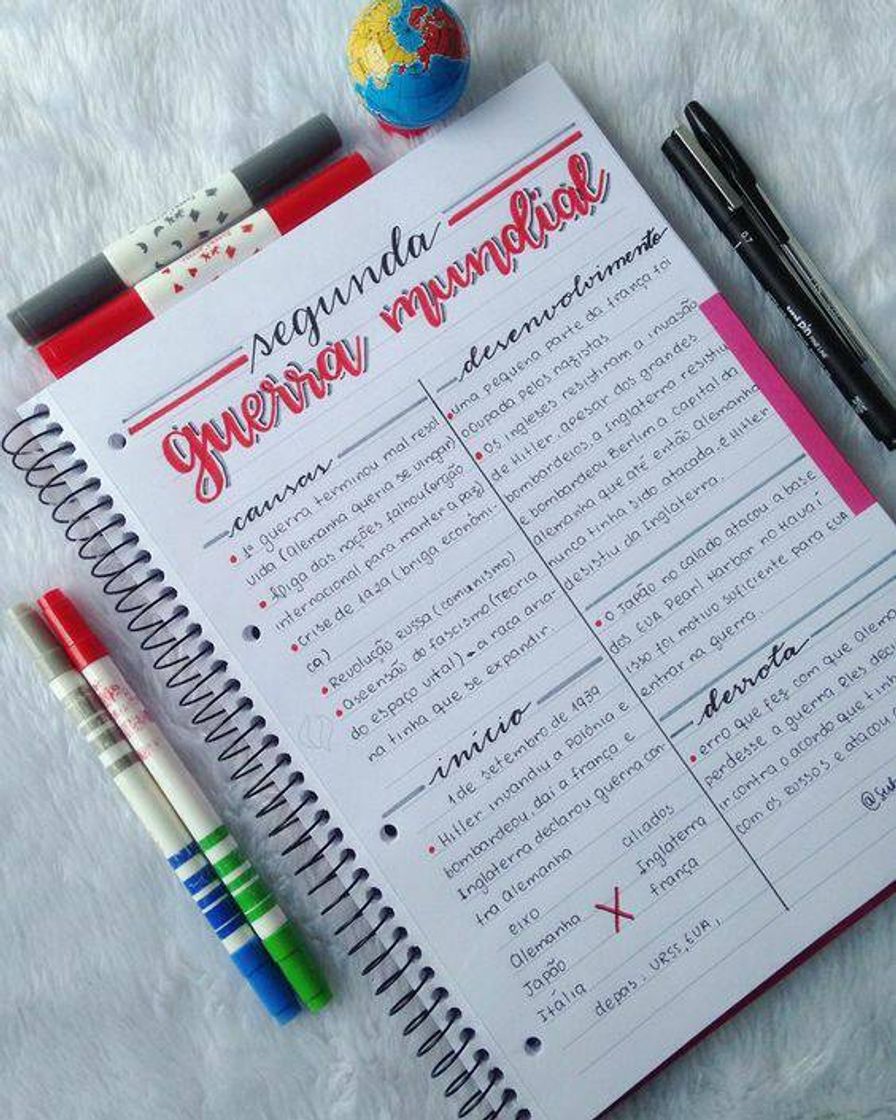 segunda
guerra mundial
causas
1ª guerra terminou mal resol
vida (Alemanha queria se vingar)
• Aliga das nações falhou (orgão
internacional para manter a paz)
• Crise de 1929 (briga econômi-
ca)
• Revolução Russa (comunismo)
• Ascensão do fascismo (Teoria
do espaço vital) → a raça aria-
na tinha que se expandir.
início
1 de setembro de 1939
• Hitler invandiu a Polônia e
bombardeou, daí a França e
Inglaterra declarou guerra con-
tra Alemanha
eixo
Alemanha
Japão
Itália
X
aliados
Inglaterra
França
depas. URSS, EUA,
desenvolvimento
• uma pequena parte da França foi
ocupada pelos nazistas
• Os ingleses resistiram a invasão
de Hitler, apesar dos grandes
bombardeios, a Inglaterra resistiu
e bombardeou Berlim a capital da
Alemanha que até então Alemanha
nunca tinha sido atacada, e Hitler
desistiu da Inglaterra.
• O Japão no calado atacou a base
dos EUA Pearl Harbor no Havaí
isso foi motivo suficiente para EUA
entrar na guerra.
derrota
• erro que fez com que Alem
perdesse a guerra Eles deci
ir contra o acordo que tin
com os Russos e atacou
0.7
uni pin FINE LINE